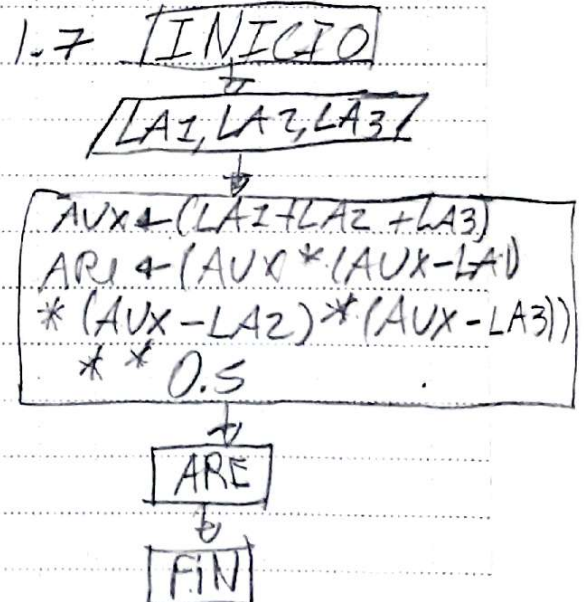 1.7 INICIO
LA1, LA2, LA3
AUX←(LA1+LA2+LA3)
ARE←(AUX*(AUX-LA1)
*(AUX-LA2)*(AUX-LA3))
** 0.5
ARE
FiN